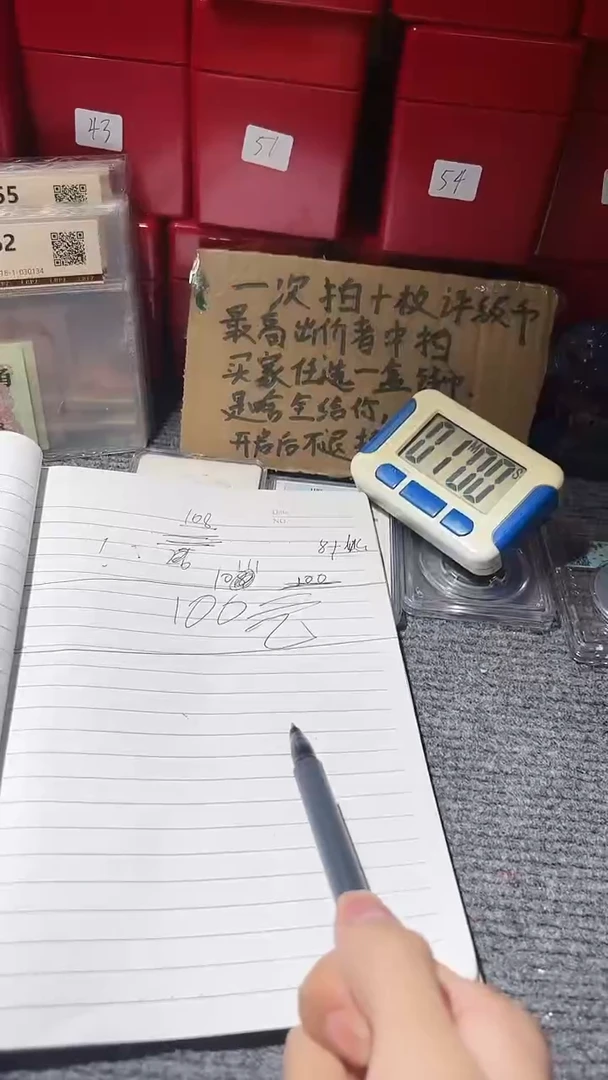 43
51
54
55
62
18-1-030134
一次拍十枚评级币
最高出价者中拍
买家任选一盒
是啥全给你,
开启后不退
01:00
108
100
100元